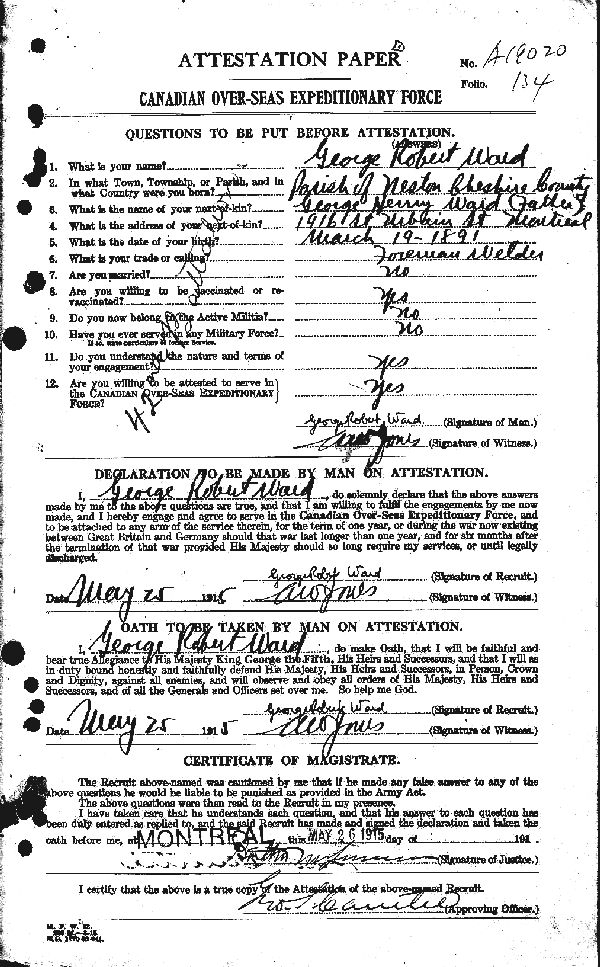 ATTESTATION PAPER
No. A19020
Folio. 134
CANADIAN OVER-SEAS EXPEDITIONARY FORCE
QUESTIONS TO BE PUT BEFORE ATTESTATION.
(ANSWERS)
1. What is your name? George Robert Ward
2. In what Town, Township, or Parish, and in what Country were you born? Parish of Neston Cheshire County
3. What is the name of your next-of-kin? George Henry Ward (Father)
4. What is the address of your next-of-kin? 1916 St Urbain St Montreal
5. What is the date of your birth? March 19-1891
6. What is your trade or calling? Foreman Welder
7. Are you married? No
8. Are you willing to be vaccinated or re-vaccinated? Yes
9. Do you now belong to the Active Militia? No
10. Have you ever served in any Military Force? No
If so, state particulars of former Service.
11. Do you understand the nature and terms of your engagement? Yes
12. Are you willing to be attested to serve in the CANADIAN OVER-SEAS EXPEDITIONARY FORCE? Yes
George Robert Ward (Signature of Man).
Jones (Signature of Witness).
DECLARATION TO BE MADE BY MAN ON ATTESTATION.
I, George Robert Ward, do solemnly declare that the above answers
made by me to the above questions are true, and that I am willing to fulfil the engagements by me now
made, and I hereby engage and agree to serve in the Canadian Over-Seas Expeditionary Force, and
to be attached to any arm of the service therein, for the term of one year, or during the war now existing
between Great Britain and Germany should that war last longer than one year, and for six months after
the termination of that war provided His Majesty should so long require my services, or until legally
discharged.
George Robt Ward (Signature of Recruit).
Date May 25 1915 Jones (Signature of Witness).
OATH TO BE TAKEN BY MAN ON ATTESTATION.
I, George Robert Ward, do make Oath, that I will be faithful and
bear true Allegiance to His Majesty King George the Fifth, His Heirs and Successors, and that I will as
in duty bound honestly and faithfully defend His Majesty, His Heirs and Successors, in Person, Crown
and Dignity, against all enemies, and will observe and obey all orders of His Majesty, His Heirs and
Successors, and of all the Generals and Officers set over me. So help me God.
George Robt Ward (Signature of Recruit).
Date May 25 1915 Jones (Signature of Witness).
CERTIFICATE OF MAGISTRATE.
The Recruit above-named was cautioned by me that if he made any false answer to any of the
above questions he would be liable to be punished as provided in the Army Act.
The above questions were then read to the Recruit in my presence.
I have taken care that he understands each question, and that his answer to each question has
been duly entered as replied to, and the said Recruit has made and signed the declaration and taken the
oath before me, at MONTREAL this MAY 26 1915 day of 191
(Signature of Justice.)
I certify that the above is a true copy of the Attestation of the above-named Recruit.
(Approving Officer.)